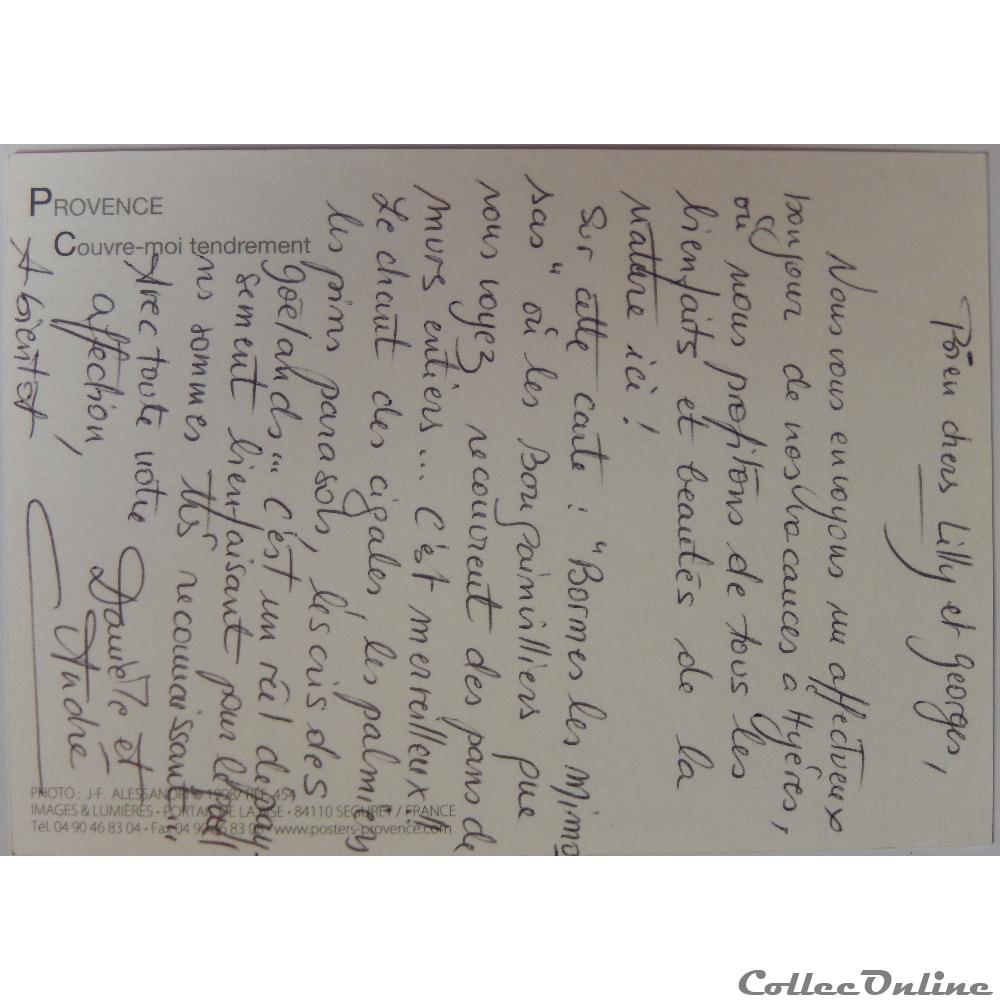 PROVENCE
Couvre-moi tendrement
Bien chers Lilly et Georges,
Nous vous envoyons un affectueux
bonjour de nos vacances à Hyères,
où nous profitons de tous les
bienfaits et beautés de la
Nature ici !
Sur cette carte : "Bormes les Mimo
sas" où les Bougainvilliers que
vous voyez recouvrent des pans de
murs entiers... C'est merveilleux
Le chant des cigales, les palmiers
les pins parasols, les cris des
goëlands... C'est un réel
sement bienfaisant pour
ns sommes très reconnaissants
Avec toute notre
affection,
Danièle et
André
A bientôt
PHOTO : J-F. ALESSANDRI © 1998/ REF. 454
IMAGES & LUMIÈRES • PORTAIL DE LA LISE • 84110 SEGURET / FRANCE
Tél. 04 90 46 83 04 • Fax 04 90 46 83 • www.posters-provence.com
CollecOnline